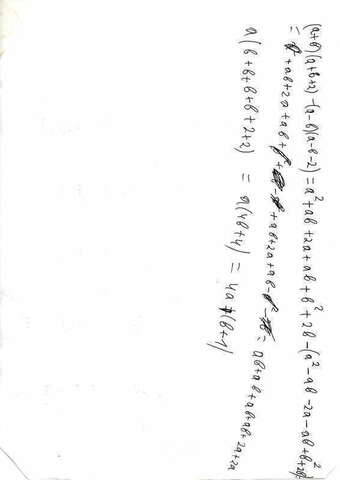 (a+b)(a+b+2)-(a-b)(a-b-2)=a²+ab+2a+ab+b²+2b-(a²-ab-2a-ab+b²+2b)
= a²+ab+2a+ab+b²+ - +ab+2a+ab-b²- = ab+ab+ab+ab+2a+2a
a(b+b+b+b+2+2) = a(4b+4) = 4a(b+1)